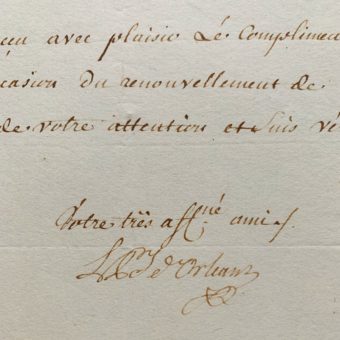 çu avec plaisir Le Complimen
casion du renouvellement de
de votre attention et suis vé
Votre très affné ami
L Ph d'Orleans